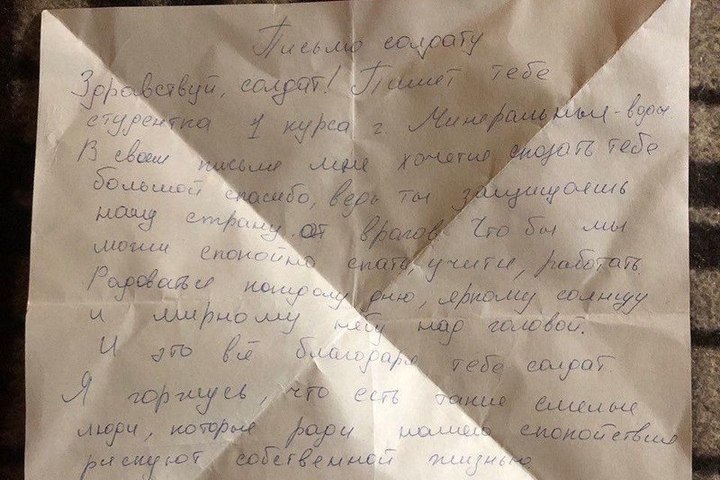 Письмо солдату
Здравствуй, солдат! Пишет тебе
студентка 1 курса г. Минеральные-воды
В своем письме мне хочется сказать тебе
большой спасибо, ведь ты защищаешь
нашу страну от врагов. Что бы мы
могли спокойно спать, учится, работать
Радоваться каждому дню, яркому солнцу
и мирному небу над головой.
И это всё благодаря тебе солдат.
Я горжусь, что есть такие смелые
люди, которые ради нашего спокойствия
рискуют собственной жизнью